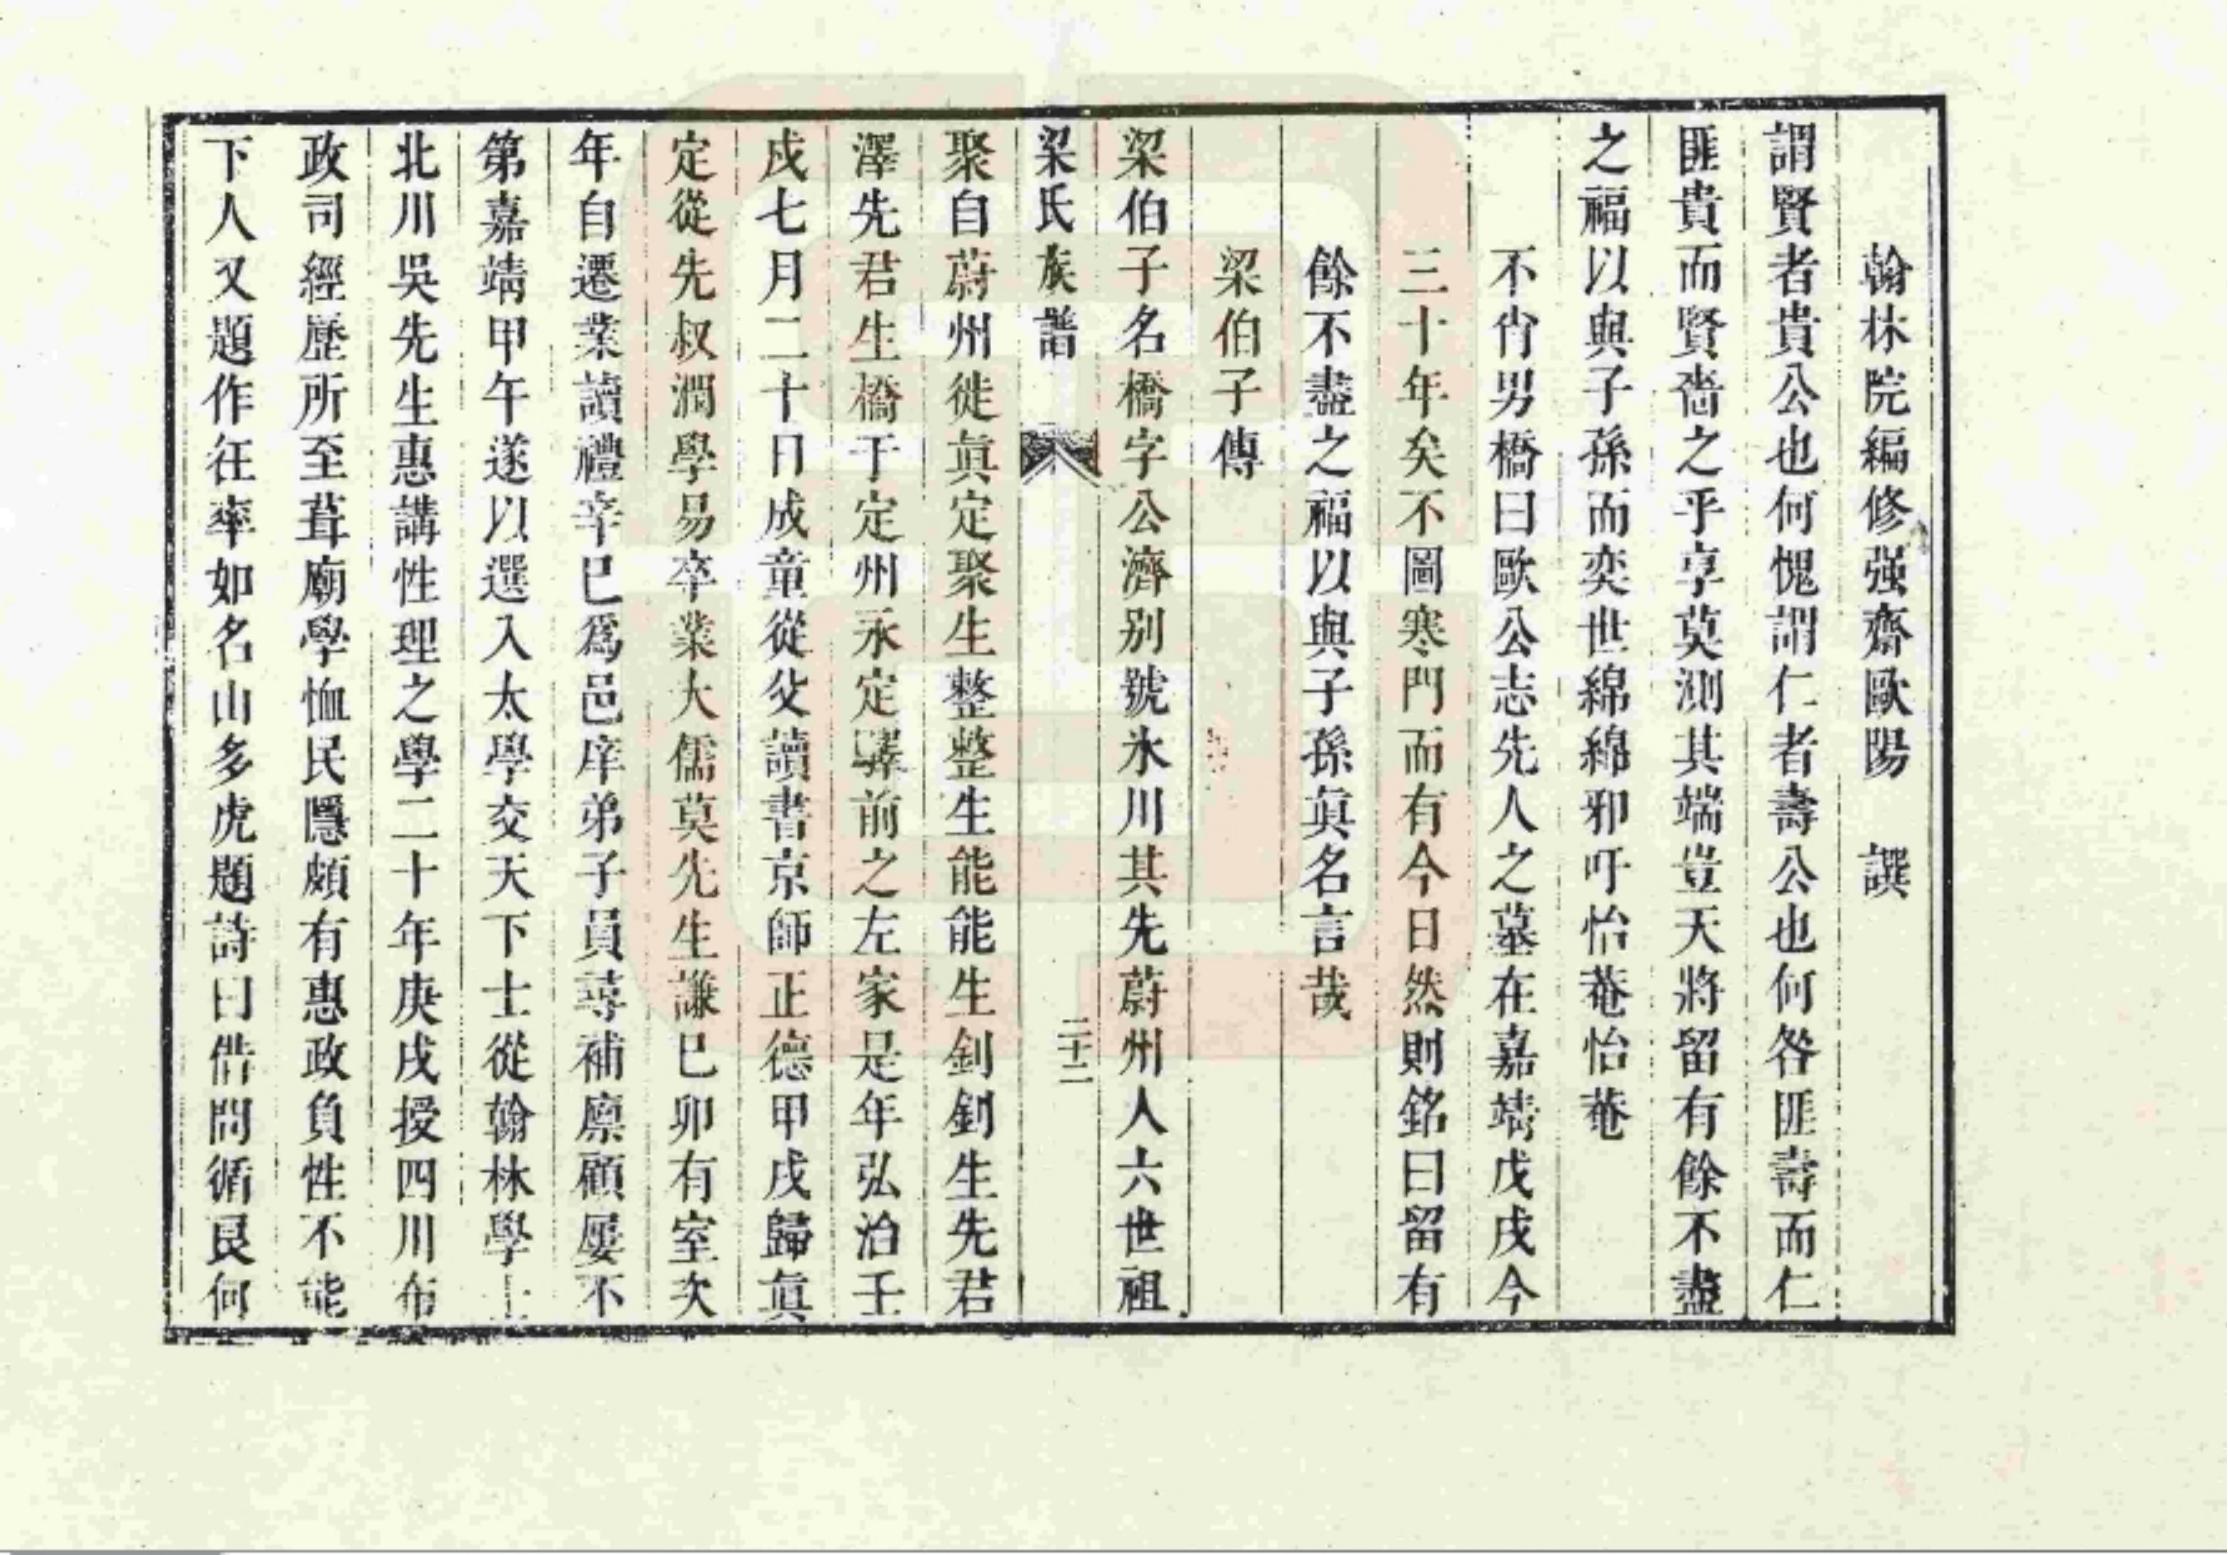 翰林院編修强齋歐陽　譔
謂賢者貴公也何愧謂仁者壽公也何咎匪壽而仁
匪貴而賢嗇之乎享莫測其端豈天將留有餘不盡
之福以與子孫而奕世綿綿邪吁怡菴怡菴
不肖男橋曰歐公志先人之墓在嘉靖戊戌今
三十年矣不圖寒門而有今日然則銘曰留有
餘不盡之福以與子孫眞名言哉
梁伯子傳
梁伯子名橋字公濟別號氷川其先蔚州人六世祖
梁氏族譜
二十二
聚自蔚州徙眞定聚生整整生能能生釗釗生先君
澤先君生橋于定州永定驛前之左家是年弘治壬
戌七月二十日成童從父讀書京師正德甲戌歸眞
定從先叔潤學易卒業大儒莫先生謙巳卯有室次
年自遷業讀禮辛巳爲邑庠弟子員尋補廪顧屢不
第嘉靖甲午遂以選入太學交天下士從翰林學士
北川吳先生惠講性理之學二十年庚戌授四川布
政司經歷所至葺廟學恤民隱頗有惠政負性不能
下人又題作往率如名山多虎題詩曰借問循良何